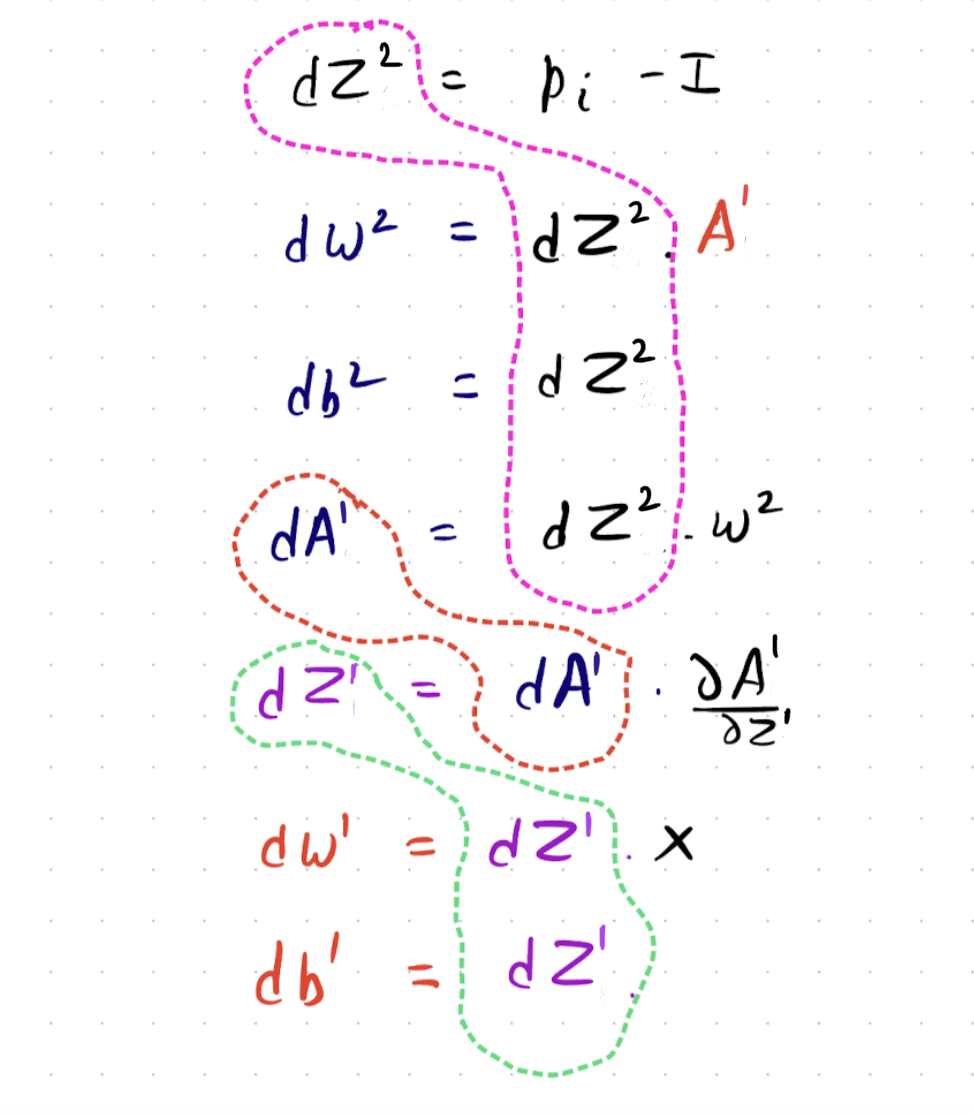 dZ² = pi - I
dw² = dZ² . A'
db² = dZ²
dA' = dZ² . w²
dZ' = dA' . ∂A'/∂Z'
dw' = dZ' . x
db' = dZ' .